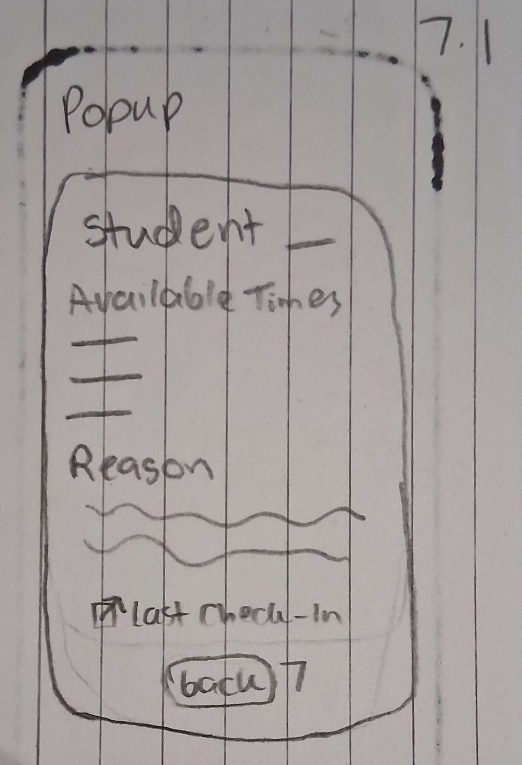 7.1
Popup
Student
Available Times
Reason
Last Check-In
back 7